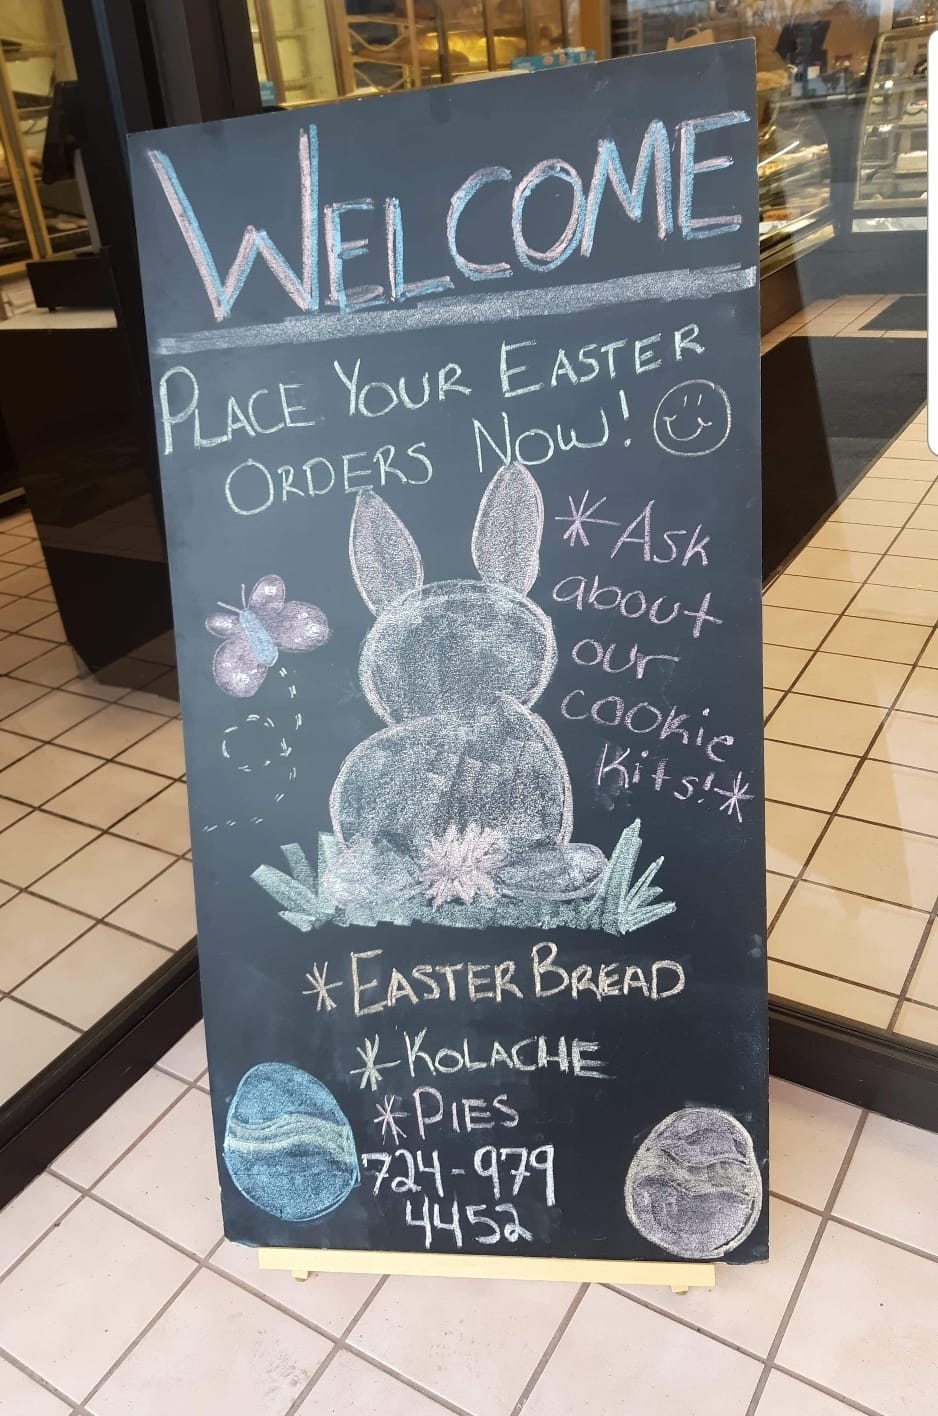 WELCOME
PLACE YOUR EASTER
ORDERS NOW!
*ASK
about
our
cookie
Kits!*
*EASTER BREAD
*KOLACHE
*PIES
724-979
4452